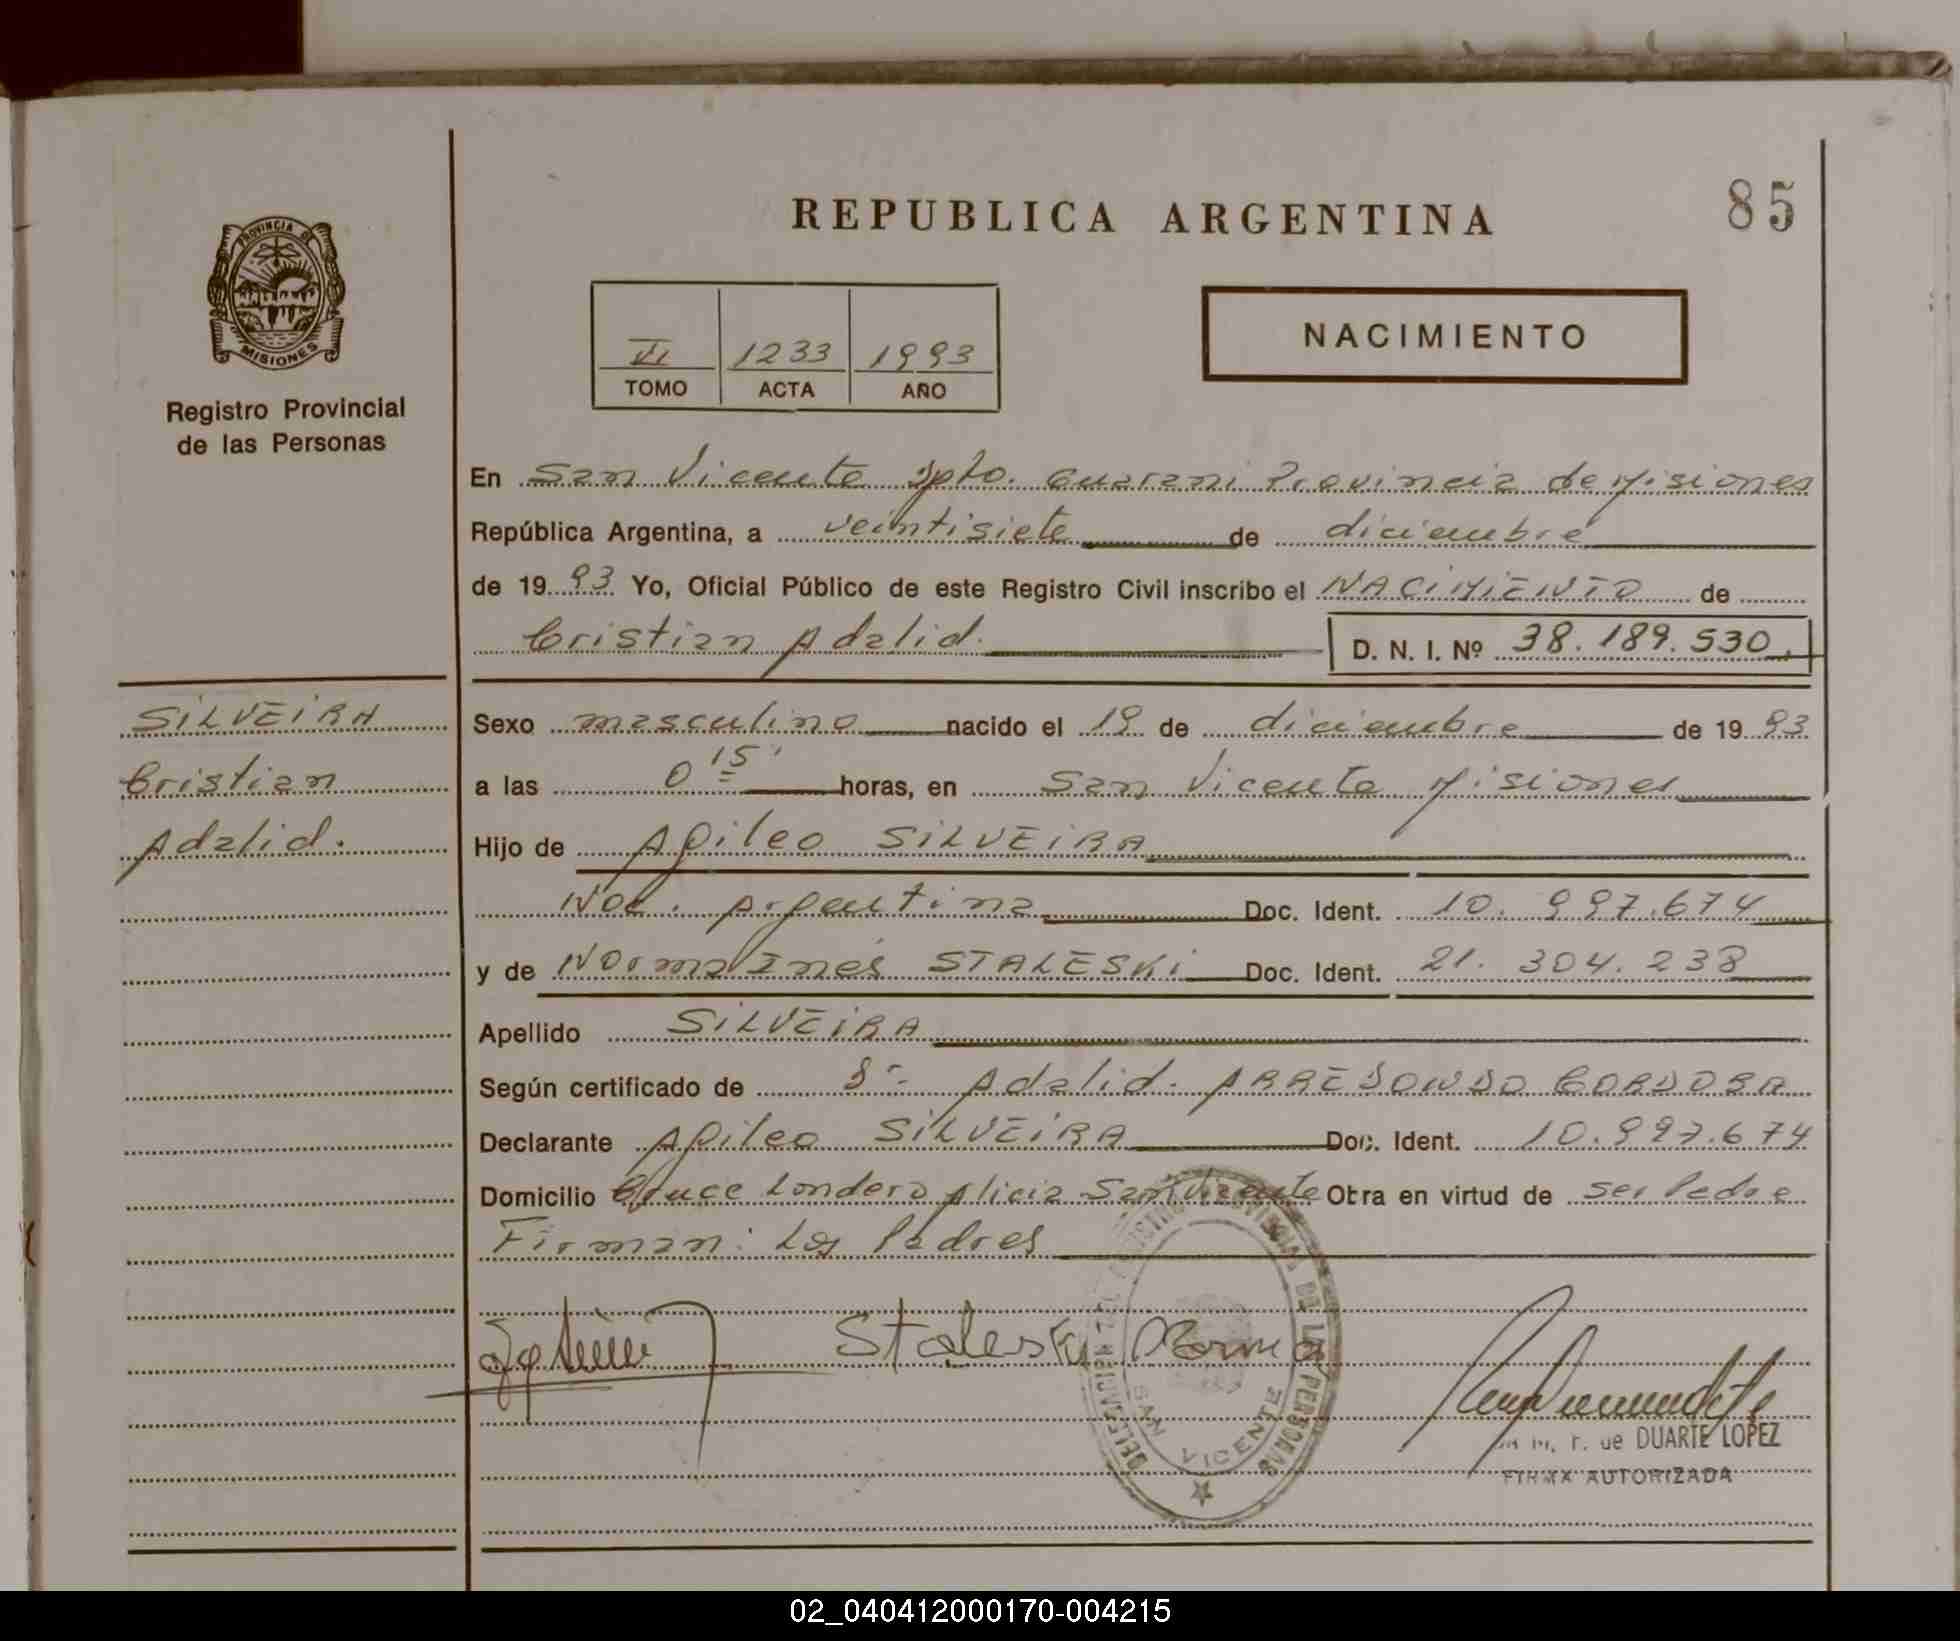 REPUBLICA ARGENTINA
85
PROVINCIA DE
MISIONES
Registro Provincial
de las Personas
VI 1233 1993
TOMO ACTA AÑO
NACIMIENTO
En San Vicente Dpto. Guarani Provincia de Misiones
República Argentina, a veintisiete de diciembre
de 19 93 Yo, Oficial Público de este Registro Civil inscribo el NACIMIENTO de
Cristian Adalid.
D. N. I. Nº 38.189.530.
SILVEIRA
Cristian
Adalid.
Sexo masculino nacido el 19 de diciembre de 19 93
a las 0 15' horas, en San Vicente Misiones
Hijo de Agileo SILVEIRA
Nac. Argentina Doc. Ident. 10.997.674
y de Norma Inés STALESKI Doc. Ident. 21.304.238
Apellido SILVEIRA
Según certificado de Dr. Adalid ARREDONDO CORDOBA
Declarante Agileo SILVEIRA Doc. Ident. 10.997.674
Domicilio Cruce Londero Alicia San Vicente Obra en virtud de ser Padre
Firman: Los Padres
Staleski Norma
DELEGACION DEL REGISTRO PROVINCIAL DE LAS PERSONAS
SAN VICENTE
de DUARTE LOPEZ
FIRMA AUTORIZADA
02_040412000170-004215